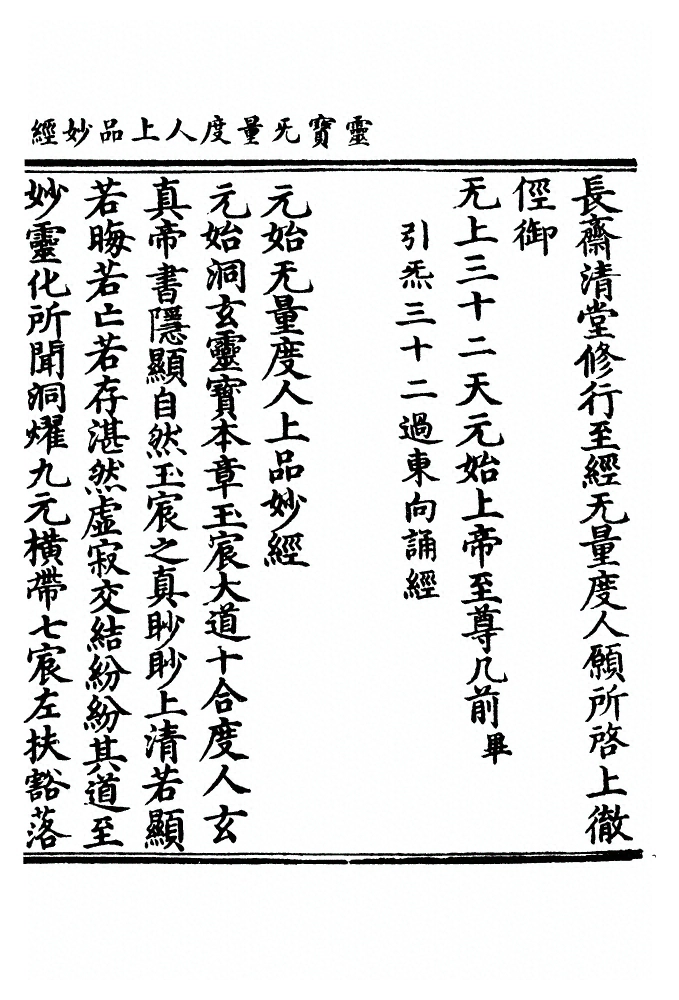 靈寶旡量度人上品妙經
長齋清堂修行至經旡量度人願所啓上徹
徑御
旡上三十二天元始上帝至尊几前畢
引炁三十二過東向誦經
元始旡量度人上品妙經
元始洞玄靈寶本章玉宸大道十合度人玄
真帝書隱顯自然玉宸之真眇眇上清若顯
若晦若亡若存湛然虛寂交結紛紛其道至
妙靈化所聞洞燿九元橫帶七宸左扶豁落